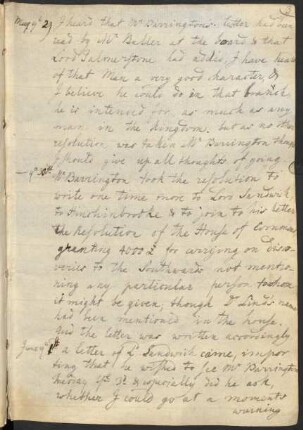 May ye 29 I heard that Mr Barringtons letter had been
read by Mr Butler at the board & that
Lord Palmerstone had added, I have heard
of that Man a very good character, &
I believe he could do in that branch
he is intended for as much as any
man in the kingdom. but as no other
resolution was taken Mr Barrington thought
I could give up all thoughts of going
ye 30th. Mr Barrington took the resolution to
write one time more to Lord Sandwich
to Hinchinbrooke & to join to his letter
the Resolution of the House of Commons
granting 4000 £ for carrying on disco-
veries to the Southwards not mentio-
ning any particular person to whom
it might be given, though Dr Linds name
had been mentioned in the house,
and the letter was written accordingly
June ye 1st a letter of Ld Sandwich came, impor-
ting that he wishes to see Mr Barrington
& especially did he ask,
whether I could go at a moments
warning